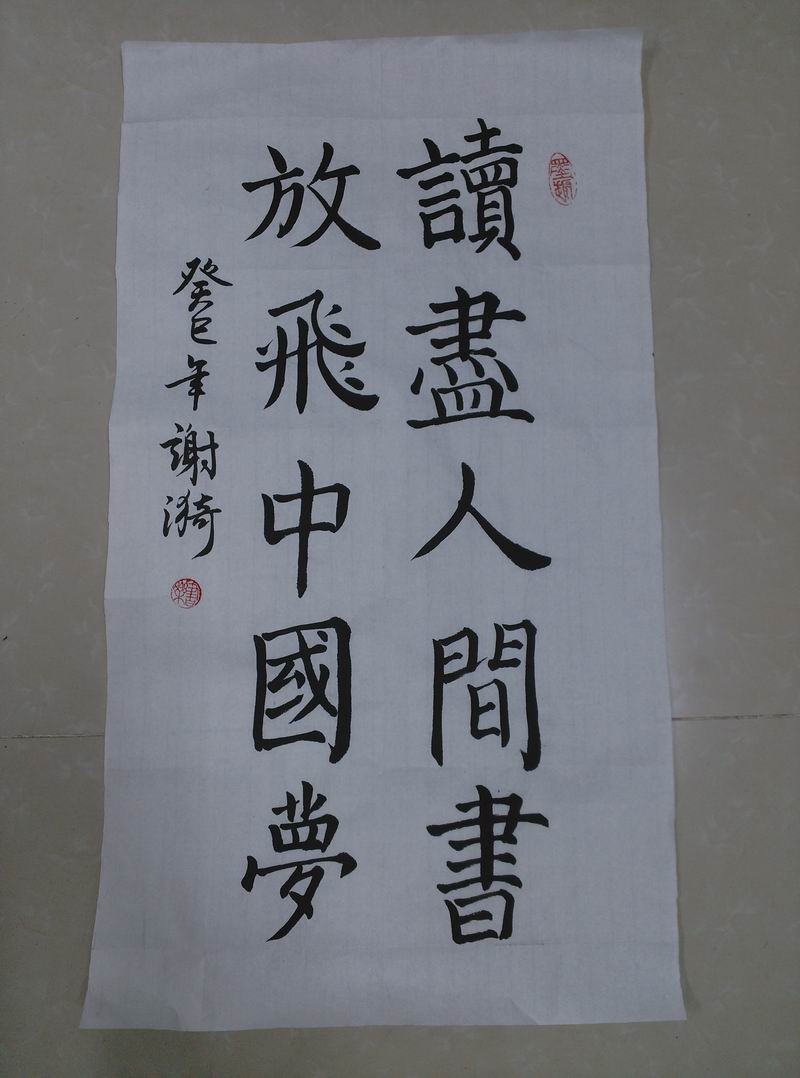 讀盡人間書
放飛中國夢
癸巳年謝漪